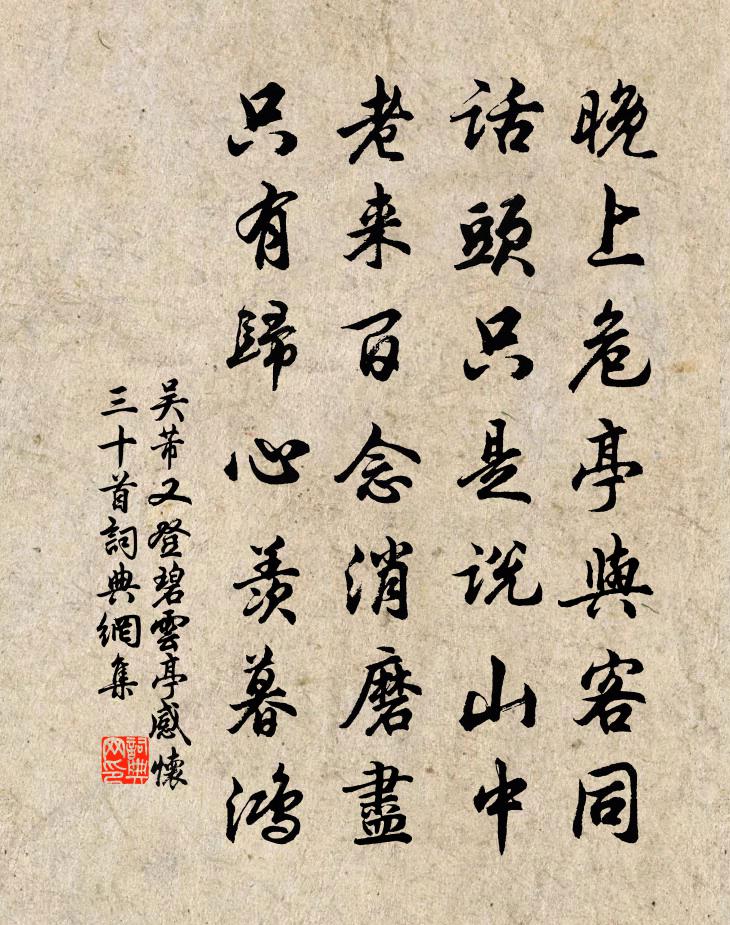 晚上危亭與客同
話頭只是説山中
老来百念消磨盡
只有歸心羨暮鴻
吴芾又登碧雲亭感懷
三十首詞典網集
詞典网印